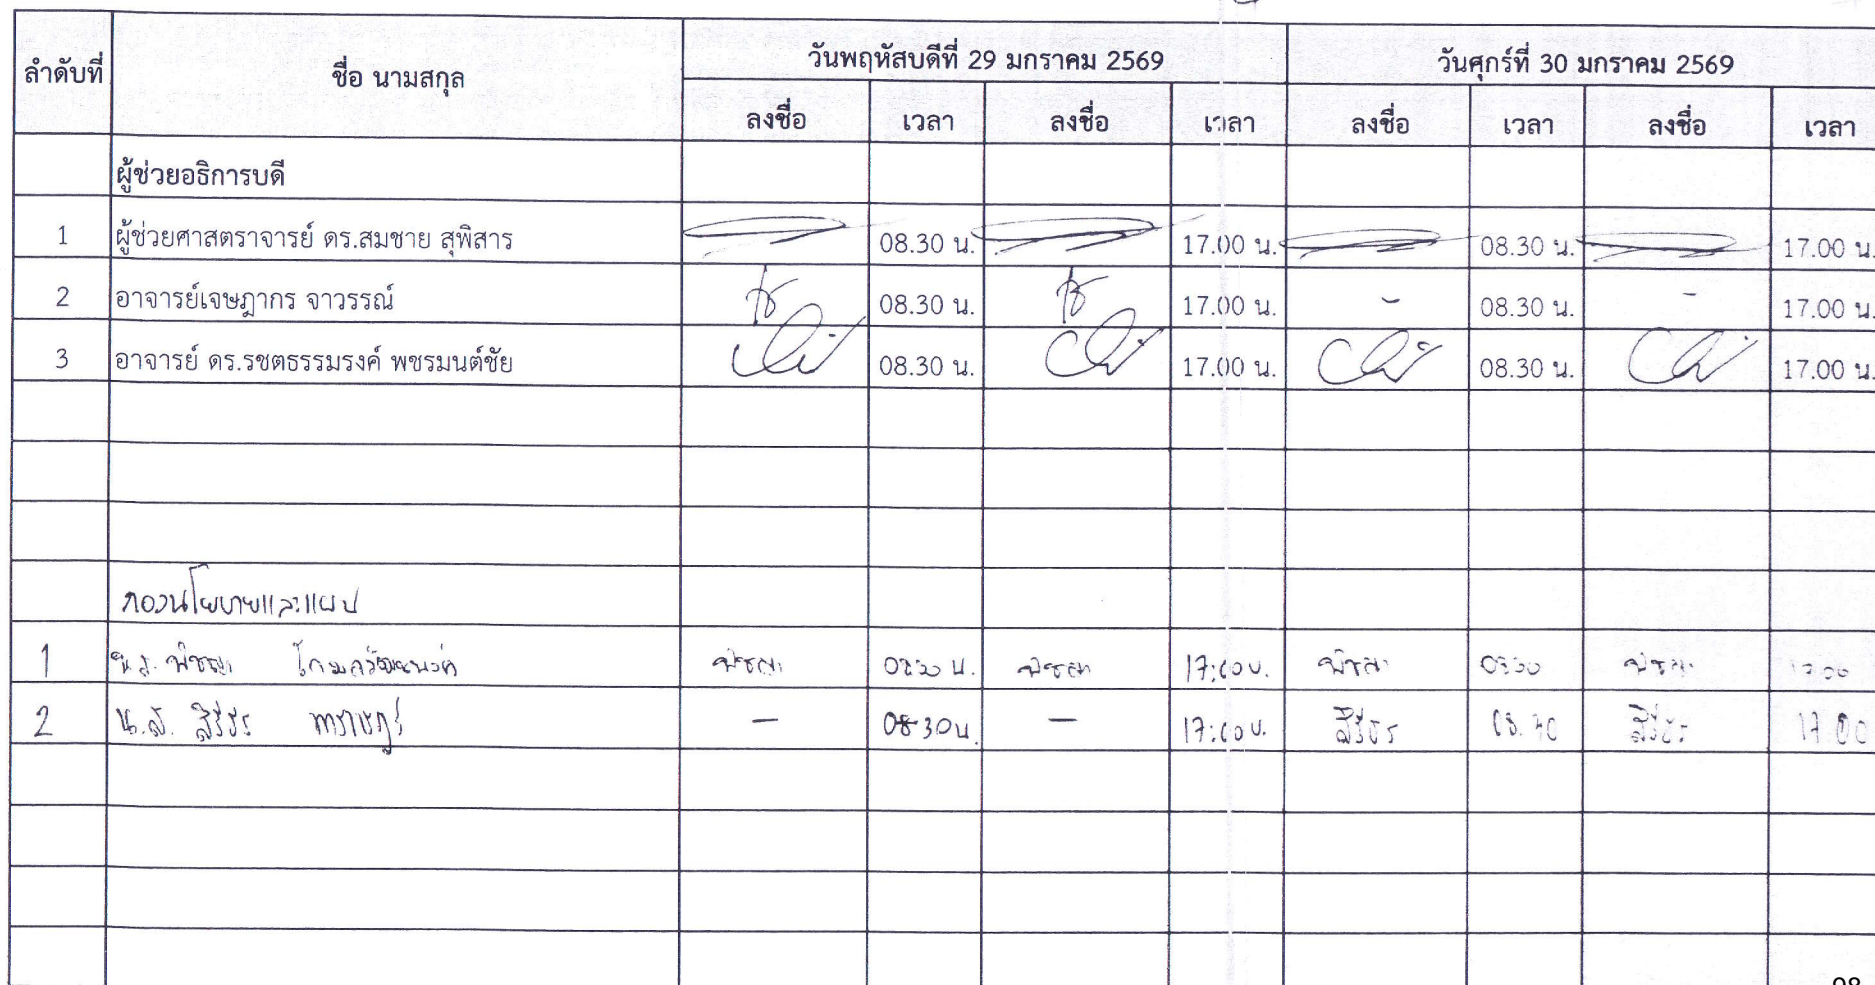 ลำดับที่ ชื่อ นามสกุล วันพฤหัสบดีที่ 29 มกราคม 2569 วันศุกร์ที่ 30 มกราคม 2569
ลงชื่อ เวลา ลงชื่อ เวลา ลงชื่อ เวลา ลงชื่อ เวลา
ผู้ช่วยอธิการบดี
1 ผู้ช่วยศาสตราจารย์ ดร.สมชาย สุพิสาร 08.30 น. 17.00 น. 08.30 น. 17.00 น.
2 อาจารย์เจษฎากร จาวรรณ์ 08.30 น. 17.00 น. - 08.30 น. - 17.00 น.
3 อาจารย์ ดร.รชตธรรมรงค์ พชรมนต์ชัย 08.30 น. 17.00 น. 08.30 น. 17.00 น.
กองนโยบายและแผน
1 พิชญา พิชญา 17:00 น. พิชญา พิชญา
2 น.ส. สิริธร - 08.30 น. - 17:00 น. สิริธร 08.30 สิริธร 17.00